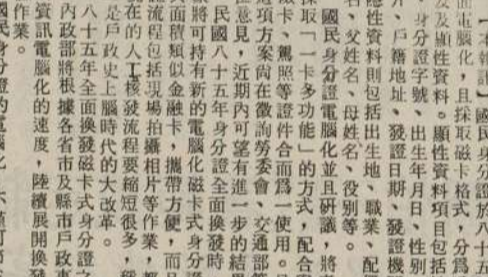 【本報訊】國民身分證於八十五
面電腦化,且採取磁卡格式,分為
及及顯性資料。顯性資料項目包括
、身分證字號、出生年月日、性別
、戶籍地址、發證日期、發證機
隱性資料則包括出生地、職業、配
名、父姓名、母姓名、役別等。
國民身分證電腦化並且研議,將
採取「一卡多功能」的方式,配合
磁卡、駕照等證件合而為一使用。
這項方案尚在徵詢勞委會、交通部等
意見,近期內可望有進一步的結果
民國八十五年身分證全面換發時
將可持有新的電腦化磁卡式身分證
面積類似金融卡,攜帶方便,而且
流程包括現場拍攝相片等作業,
在的人工核發流程要縮短很多,
是戶政史上腦時代的大改革。
八十五年全面換發磁卡式身分證之
內政部將根據各省市及縣市戶政
資訊電腦化的速度,陸續展開換發
作業。
國民身分證的電腦化